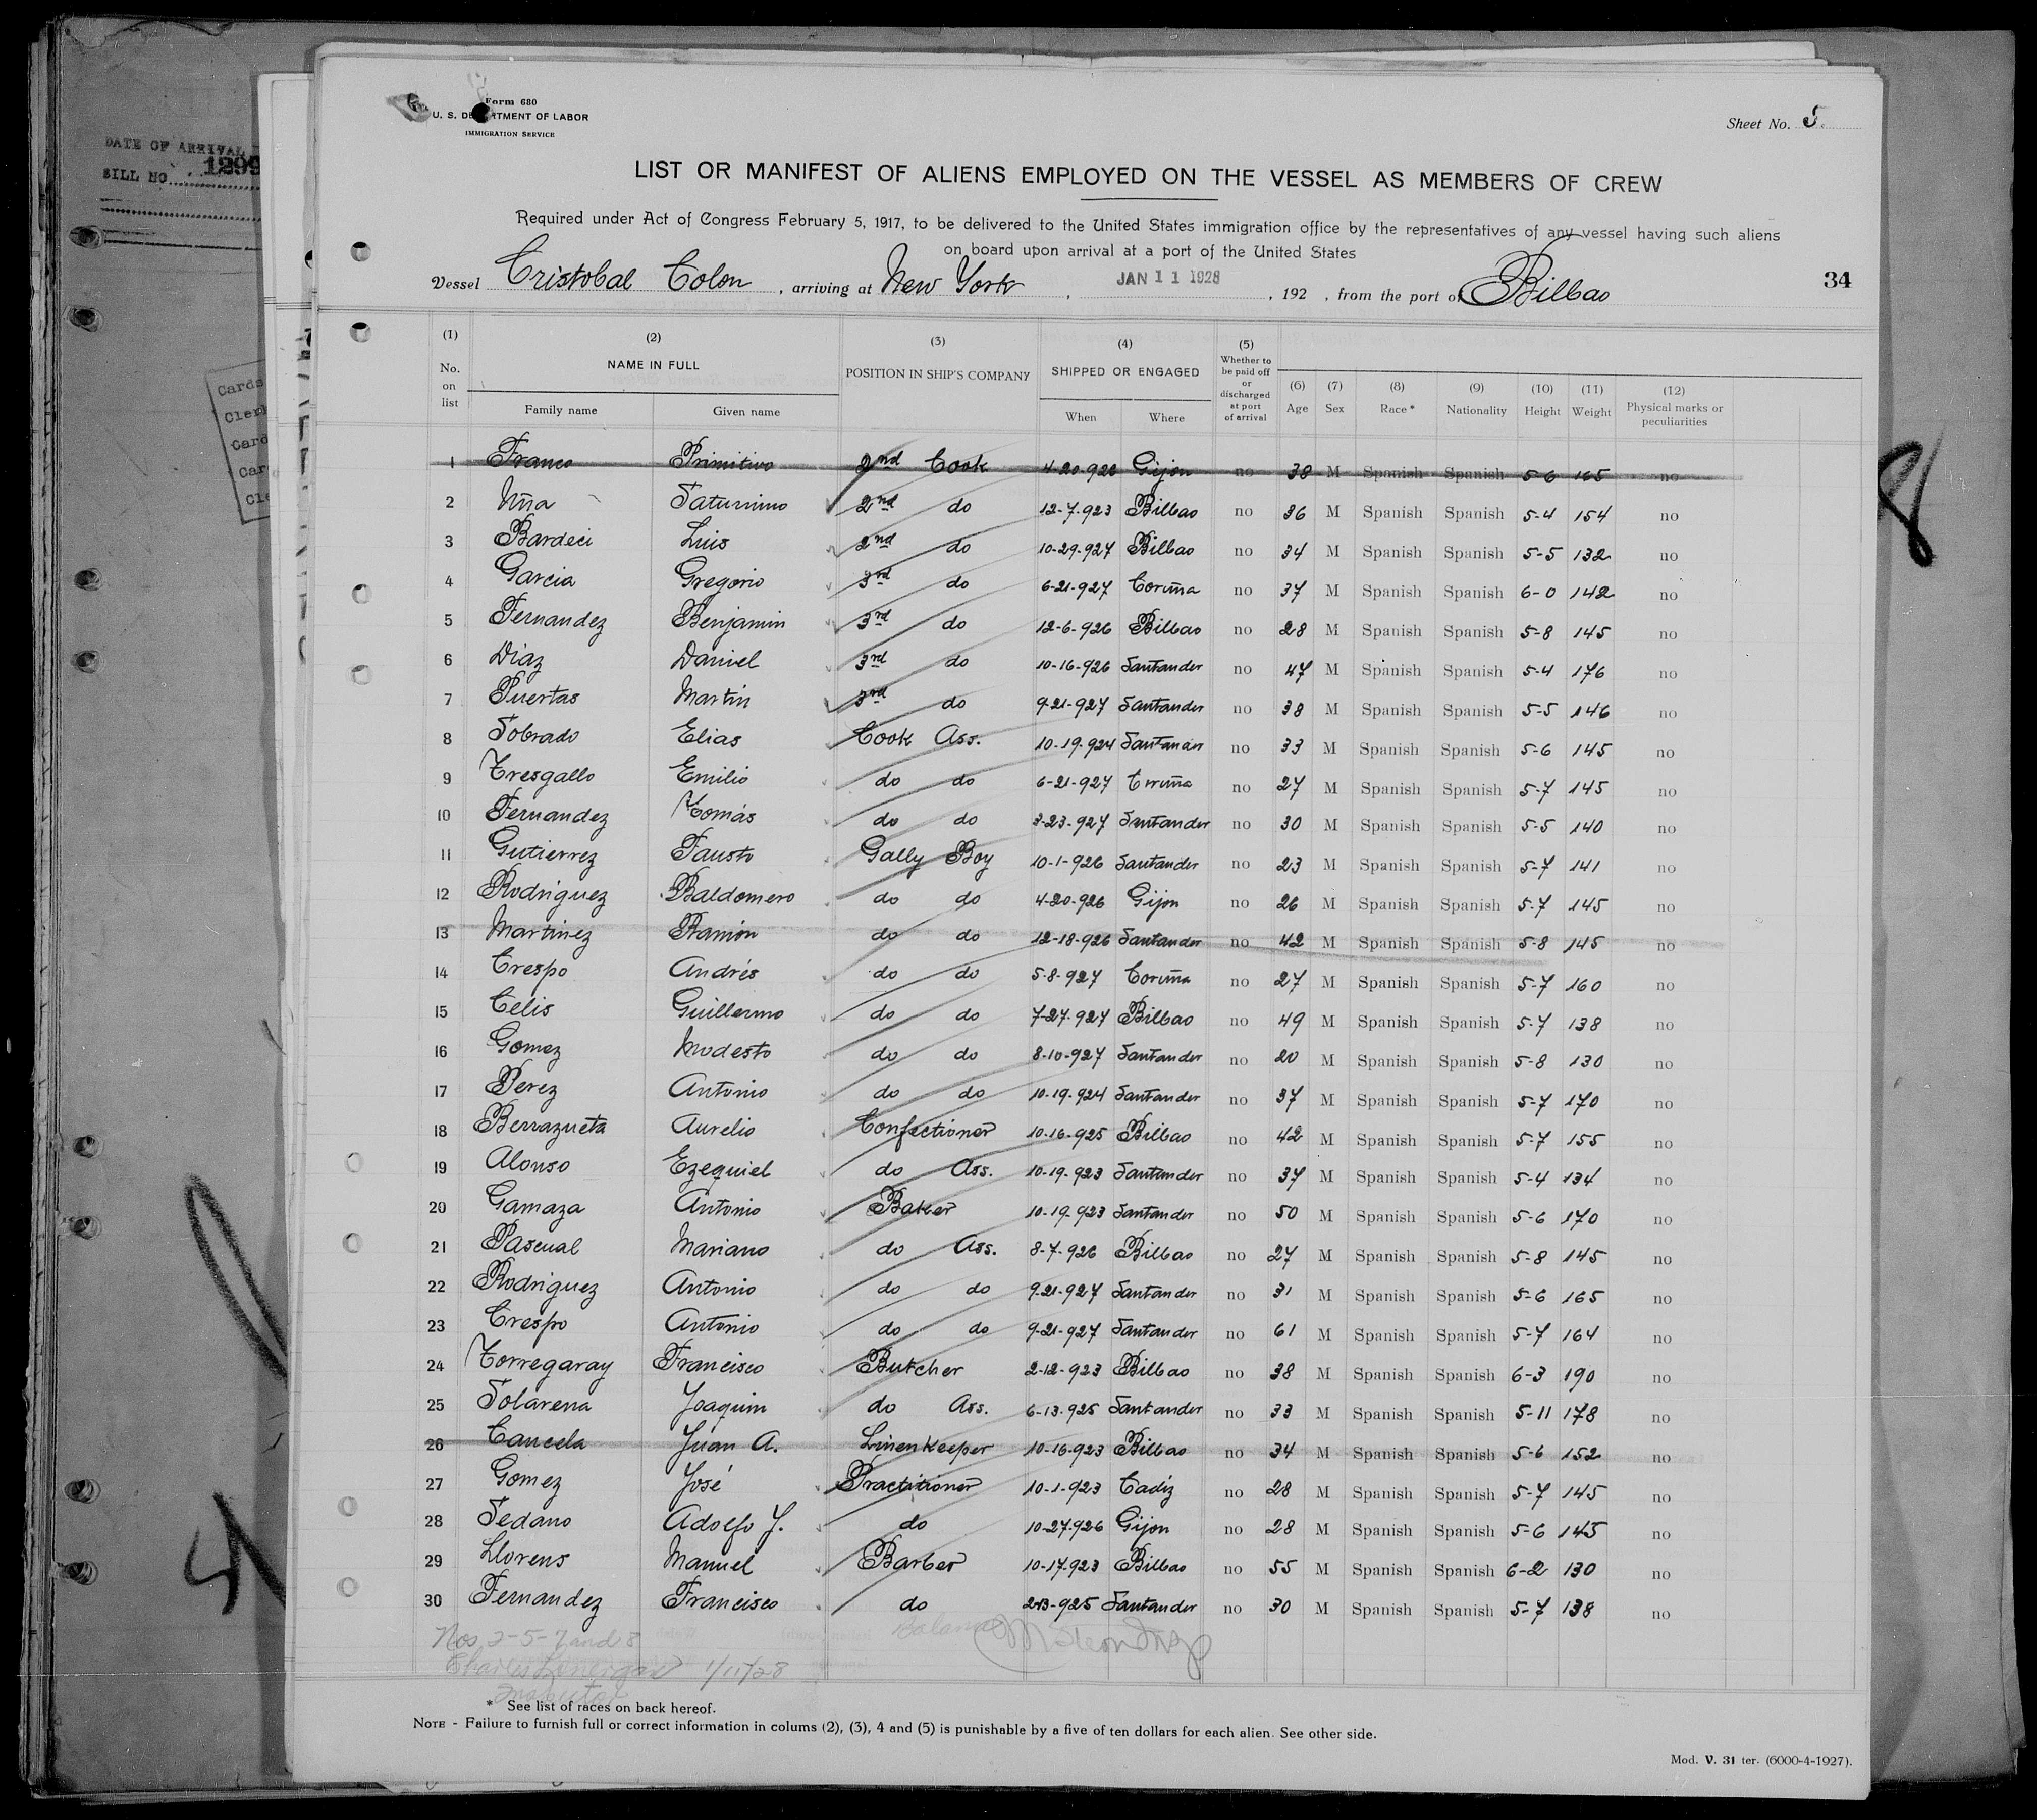 DATE OF ARRIVAL
BILL NO. 1299
Cards
Form 680
U. S. DEPARTMENT OF LABOR
IMMIGRATION SERVICE
Sheet No. 5.
LIST OR MANIFEST OF ALIENS EMPLOYED ON THE VESSEL AS MEMBERS OF CREW
Required under Act of Congress February 5, 1917, to be delivered to the United States immigration office by the representatives of any vessel having such aliens
on board upon arrival at a port of the United States
Vessel Cristobal Colon, arriving at New York, JAN 11 1928, 192 , from the port of Bilbao 34
(1) (2) (3) (4) (5) (6) (7) (8) (9) (10) (11) (12)
No. on list NAME IN FULL POSITION IN SHIP'S COMPANY SHIPPED OR ENGAGED Whether to be paid off or discharged at port of arrival Age Sex Race* Nationality Height Weight Physical marks or peculiarities
Family name Given name When Where
1 Franco Primitivo 2nd Cook 4-20-926 Gijon no 38 M Spanish Spanish 5-6 165 no
2 Uña Saturnino 2nd do 12-7-923 Bilbao no 36 M Spanish Spanish 5-4 154 no
3 Bardeci Luis 2nd do 10-29-927 Bilbao no 34 M Spanish Spanish 5-5 132 no
4 Garcia Gregorio 3rd do 6-21-927 Coruña no 37 M Spanish Spanish 6-0 142 no
5 Fernandez Benjamin 3rd do 12-6-926 Bilbao no 28 M Spanish Spanish 5-8 145 no
6 Diaz Daniel 3rd do 10-16-926 Santander no 47 M Spanish Spanish 5-4 176 no
7 Puertas Martin 3rd do 9-21-927 Santander no 38 M Spanish Spanish 5-5 146 no
8 Sobrado Elias Cook Ass. 10-19-924 Santander no 33 M Spanish Spanish 5-6 145 no
9 Tresgallo Emilio do do 6-21-927 Coruña no 27 M Spanish Spanish 5-7 145 no
10 Fernandez Tomás do do 3-23-927 Santander no 30 M Spanish Spanish 5-5 140 no
11 Gutierrez Fausto Gally Boy 10-1-926 Santander no 23 M Spanish Spanish 5-7 141 no
12 Rodriguez Baldomero do do 4-20-926 Gijon no 26 M Spanish Spanish 5-7 145 no
13 Martinez Ramón do do 12-18-926 Santander no 42 M Spanish Spanish 5-8 145 no
14 Crespo Andrés do do 5-8-927 Coruña no 27 M Spanish Spanish 5-7 160 no
15 Celis Guillermo do do 7-27-927 Bilbao no 49 M Spanish Spanish 5-7 138 no
16 Gomez Modesto do do 8-10-927 Santander no 20 M Spanish Spanish 5-8 130 no
17 Perez Antonio do do 10-19-924 Santander no 37 M Spanish Spanish 5-7 170 no
18 Berrazueta Aurelio Confectioner 10-16-925 Bilbao no 42 M Spanish Spanish 5-7 155 no
19 Alonso Ezequiel do Ass. 10-19-923 Santander no 37 M Spanish Spanish 5-4 134 no
20 Gamaza Antonio Baker 10-19-923 Santander no 50 M Spanish Spanish 5-6 170 no
21 Pascual Mariano do Ass. 8-7-926 Bilbao no 27 M Spanish Spanish 5-8 145 no
22 Rodriguez Antonio do do 9-21-927 Santander no 31 M Spanish Spanish 5-6 165 no
23 Crespo Antonio do do 9-21-927 Santander no 61 M Spanish Spanish 5-7 164 no
24 Torregaray Francisco Butcher 2-12-923 Bilbao no 38 M Spanish Spanish 6-3 190 no
25 Solarena Joaquim do Ass. 6-13-925 Santander no 33 M Spanish Spanish 5-11 178 no
26 Cancela Juan A. Linenkeeper 10-16-923 Bilbao no 34 M Spanish Spanish 5-6 152 no
27 Gomez José Practitioner 10-1-923 Cadiz no 28 M Spanish Spanish 5-7 145 no
28 Sedano Adolfo J. do 10-27-926 Gijon no 28 M Spanish Spanish 5-6 145 no
29 Llorens Manuel Barber 10-17-923 Bilbao no 55 M Spanish Spanish 6-2 130 no
30 Fernandez Francisco do 2-13-925 Santander no 30 M Spanish Spanish 5-7 138 no
Nos 2-5-7 and 8
Charles Lonergan 1/11/28
* See list of races on back hereof.
NOTE - Failure to furnish full or correct information in colums (2), (3), 4 and (5) is punishable by a five of ten dollars for each alien. See other side.
Mod. V. 31 ter. (6000-4-1927).